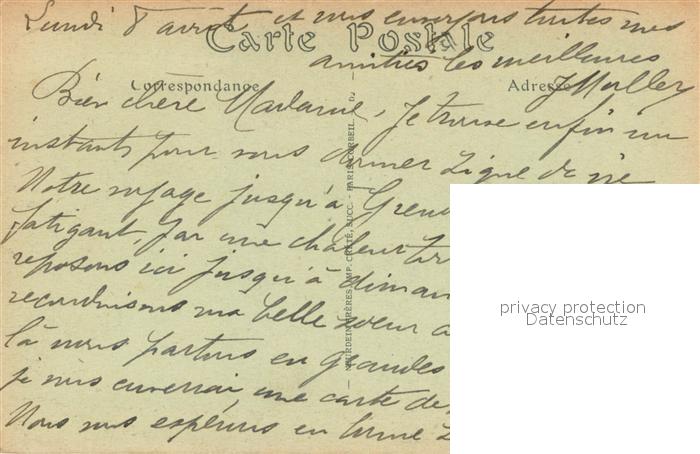 Lundi 8 août et vous envoyons toutes nos
amitiés les meilleures
Carte Postale
Correspondance
Adresse
J Muller
Bien chère Madame, Je trouve enfin un
instant pour vous donner signe de vie
Notre voyage jusqu'à Gren
fatigant, par une chaleur
reposons ici jusqu'à diman
reconduisons ma belle soeur a
là nous partons en grandes
je vous enverrai une carte de
Nous vous espérons en bonne
NEURDEIN FRÈRES, IMP. CRÉTÉ, SUCC. - PARIS-CORBEIL
privacy protection
Datenschutz